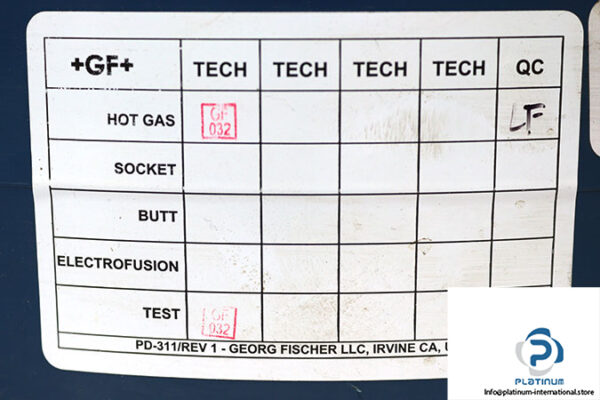 +GF+ TECH TECH TECH TECH QC
HOT GAS GF 032 LF
SOCKET
BUTT
ELECTROFUSION
TEST GF 032
PD-311/REV 1 - GEORG FISCHER LLC, IRVINE CA, U
PLATINUM
Info@platinum-international.store